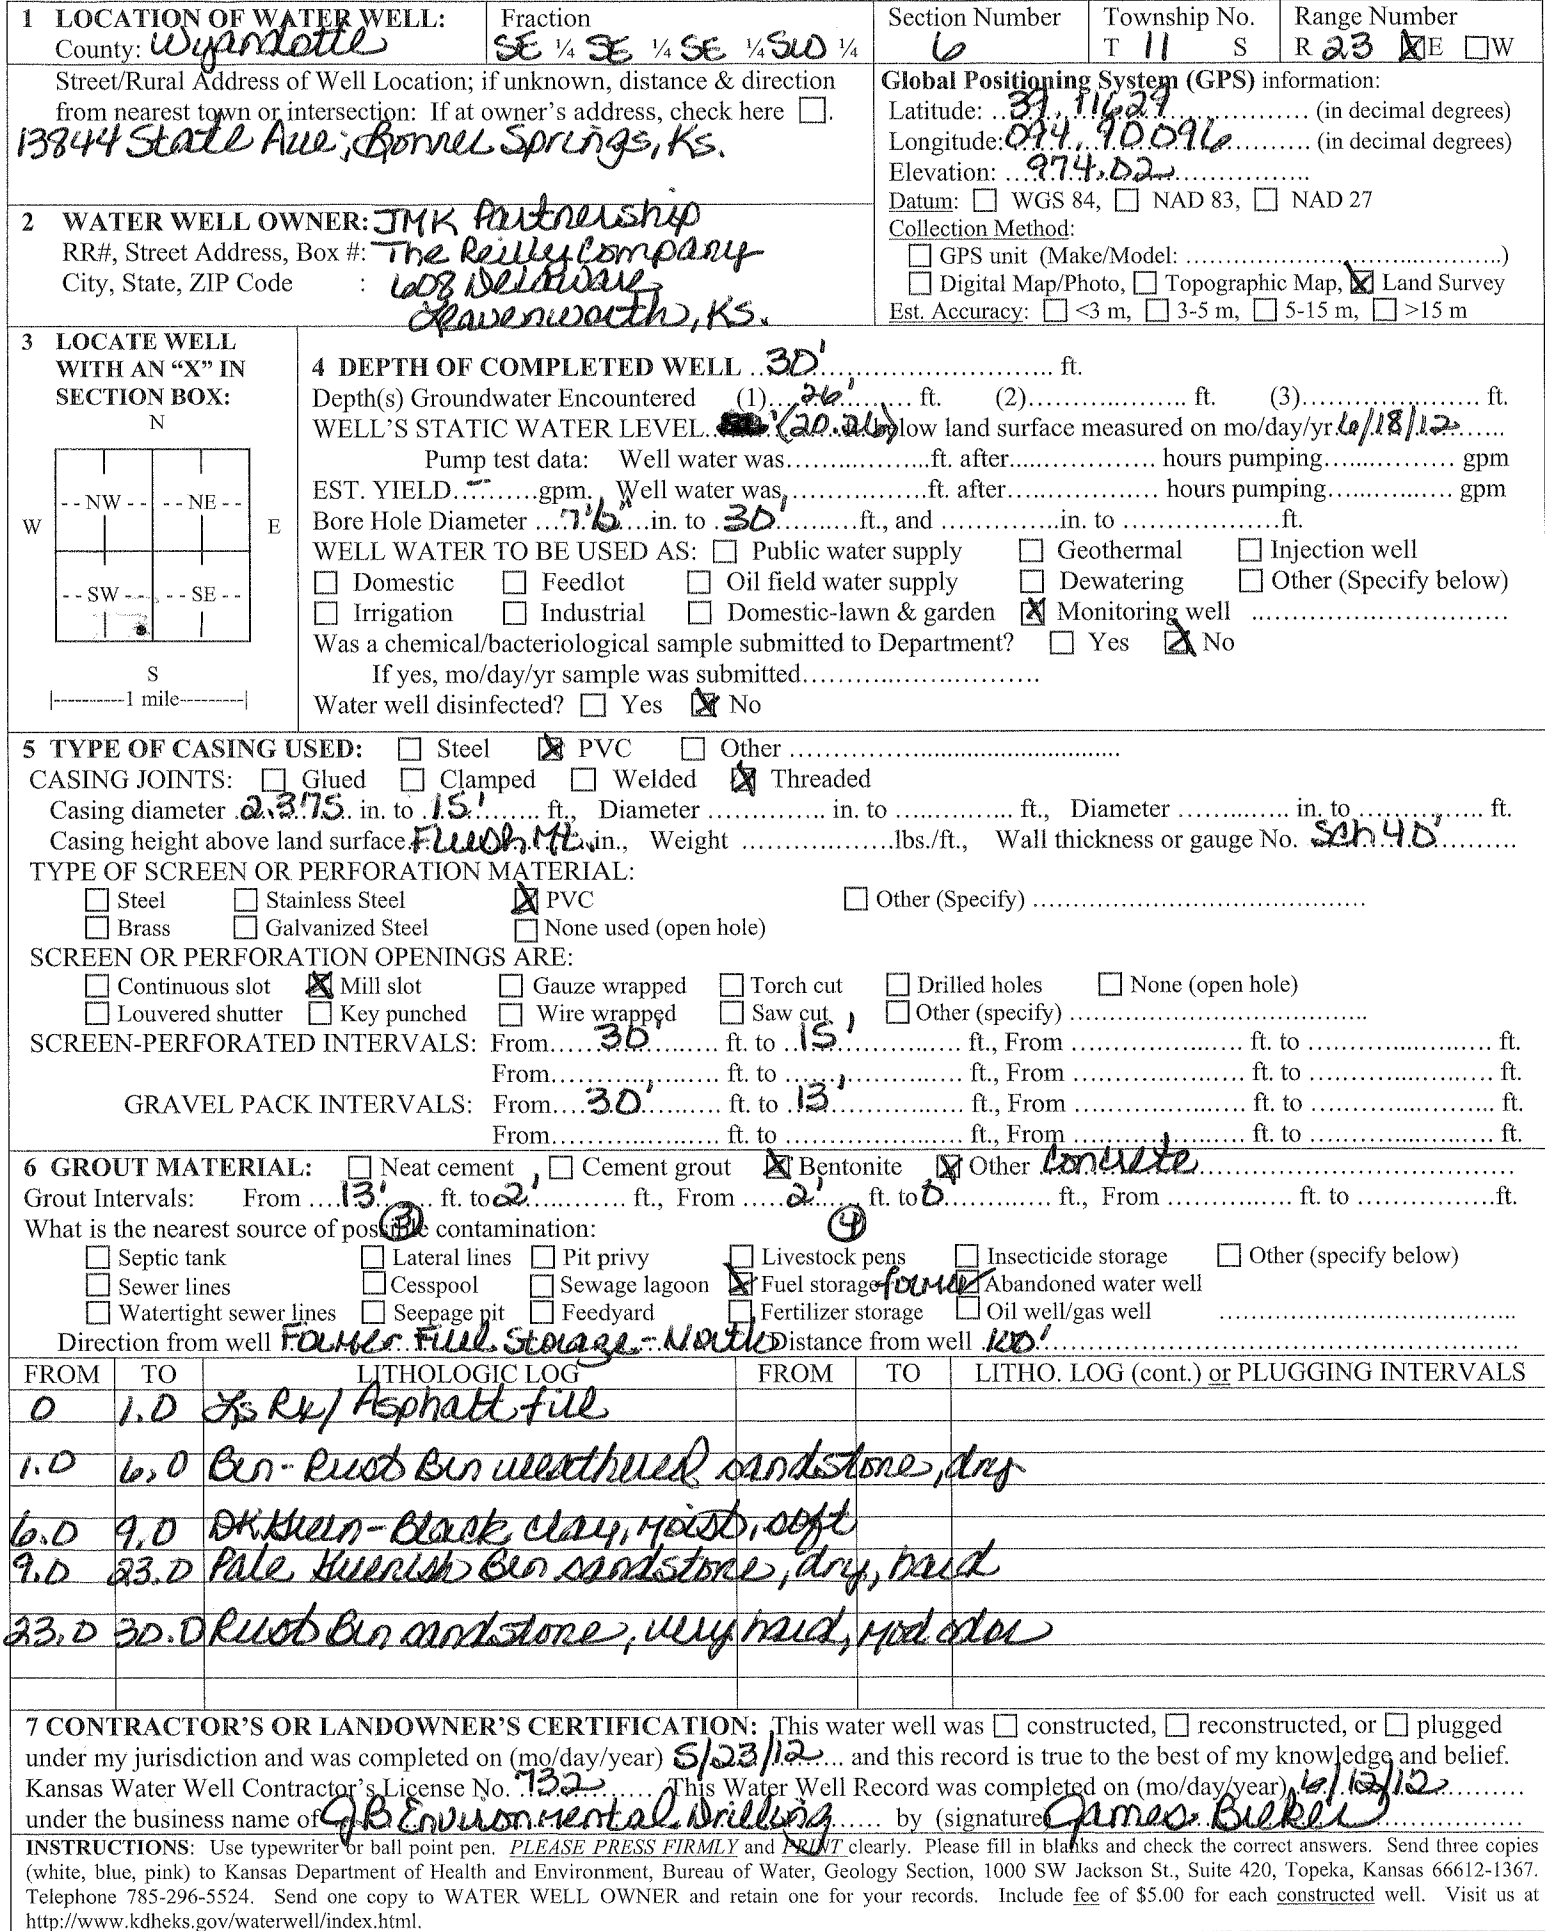 1 LOCATION OF WATER WELL: Fraction Section Number Township No. Range Number
County: Wyandotte SE ¼ SE ¼ SE ¼ SW ¼ 6 T 11 S R 23 ☒E ☐W
Street/Rural Address of Well Location; if unknown, distance & direction
from nearest town or intersection: If at owner's address, check here ☐.
13844 State Ave; Bonner Springs, Ks.
Global Positioning System (GPS) information:
Latitude: 39.11629 (in decimal degrees)
Longitude: 094.90096 (in decimal degrees)
Elevation: 974.02
Datum: ☐ WGS 84, ☐ NAD 83, ☐ NAD 27
Collection Method:
☐ GPS unit (Make/Model: ........)
☐ Digital Map/Photo, ☐ Topographic Map, ☒ Land Survey
Est. Accuracy: ☐ <3 m, ☐ 3-5 m, ☐ 5-15 m, ☐ >15 m
2 WATER WELL OWNER: JMK Partnership
RR#, Street Address, Box #: The Reilly Company
City, State, ZIP Code : 608 Delaware
Leavenworth, Ks.
3 LOCATE WELL
WITH AN "X" IN
SECTION BOX:
N
NW NE
W E
SW SE
S
1 mile
4 DEPTH OF COMPLETED WELL 30' ft.
Depth(s) Groundwater Encountered (1) 26' ft. (2) ft. (3) ft.
WELL'S STATIC WATER LEVEL (20.26) low land surface measured on mo/day/yr 6/18/12
Pump test data: Well water was ft. after hours pumping gpm
EST. YIELD -- gpm. Well water was ft. after hours pumping gpm
Bore Hole Diameter 7'6" in. to 30' ft., and in. to ft.
WELL WATER TO BE USED AS: ☐ Public water supply ☐ Geothermal ☐ Injection well
☐ Domestic ☐ Feedlot ☐ Oil field water supply ☐ Dewatering ☐ Other (Specify below)
☐ Irrigation ☐ Industrial ☐ Domestic-lawn & garden ☒ Monitoring well
Was a chemical/bacteriological sample submitted to Department? ☐ Yes ☒ No
If yes, mo/day/yr sample was submitted
Water well disinfected? ☐ Yes ☒ No
5 TYPE OF CASING USED: ☐ Steel ☒ PVC ☐ Other
CASING JOINTS: ☐ Glued ☐ Clamped ☐ Welded ☒ Threaded
Casing diameter 2.375 in. to 15' ft., Diameter in. to ft., Diameter in. to ft.
Casing height above land surface Flush Mt. in., Weight lbs./ft., Wall thickness or gauge No. Sch 40
TYPE OF SCREEN OR PERFORATION MATERIAL:
☐ Steel ☐ Stainless Steel ☒ PVC ☐ Other (Specify)
☐ Brass ☐ Galvanized Steel ☐ None used (open hole)
SCREEN OR PERFORATION OPENINGS ARE:
☐ Continuous slot ☒ Mill slot ☐ Gauze wrapped ☐ Torch cut ☐ Drilled holes ☐ None (open hole)
☐ Louvered shutter ☐ Key punched ☐ Wire wrapped ☐ Saw cut ☐ Other (specify)
SCREEN-PERFORATED INTERVALS: From 30' ft. to 15' ft., From ft. to ft.
From ft. to ft., From ft. to ft.
GRAVEL PACK INTERVALS: From 30' ft. to 13' ft., From ft. to ft.
From ft. to ft., From ft. to ft.
6 GROUT MATERIAL: ☐ Neat cement ☐ Cement grout ☒ Bentonite ☒ Other Concrete
Grout Intervals: From 13' ft. to 2' ft., From 2' ft. to 0 ft., From ft. to ft.
What is the nearest source of possible contamination: (3) (4)
☐ Septic tank ☐ Lateral lines ☐ Pit privy ☐ Livestock pens ☐ Insecticide storage ☐ Other (specify below)
☐ Sewer lines ☐ Cesspool ☐ Sewage lagoon ☒ Fuel storage former ☐ Abandoned water well
☐ Watertight sewer lines ☐ Seepage pit ☐ Feedyard ☐ Fertilizer storage ☐ Oil well/gas well
Direction from well Former Fuel Storage - North Distance from well 100'
FROM TO LITHOLOGIC LOG FROM TO LITHO. LOG (cont.) or PLUGGING INTERVALS
0 1.0 Ls Rk/Asphalt fill
1.0 6.0 Brn-Rust Brn weathered sandstone, dry
6.0 9.0 DK Green-Black clay, moist, soft
9.0 23.0 Pale Greenish Brn sandstone, dry, hard
23.0 30.0 Rust Brn sandstone, very hard, mod odor
7 CONTRACTOR'S OR LANDOWNER'S CERTIFICATION: This water well was ☐ constructed, ☐ reconstructed, or ☐ plugged
under my jurisdiction and was completed on (mo/day/year) 5/23/12 and this record is true to the best of my knowledge and belief.
Kansas Water Well Contractor's License No. 732 This Water Well Record was completed on (mo/day/year) 6/12/12
under the business name of JB Environmental Drilling by (signature) James Bieker
INSTRUCTIONS: Use typewriter or ball point pen. PLEASE PRESS FIRMLY and PRINT clearly. Please fill in blanks and check the correct answers. Send three copies
(white, blue, pink) to Kansas Department of Health and Environment, Bureau of Water, Geology Section, 1000 SW Jackson St., Suite 420, Topeka, Kansas 66612-1367.
Telephone 785-296-5524. Send one copy to WATER WELL OWNER and retain one for your records. Include fee of $5.00 for each constructed well. Visit us at
http://www.kdheks.gov/waterwell/index.html.